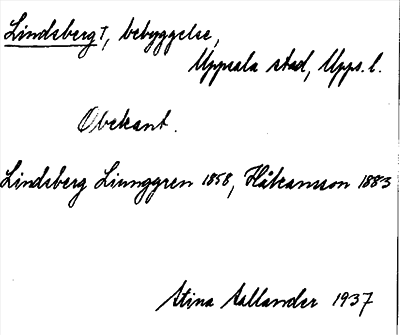 Lindsberg†, bebyggelse,
Uppsala stad, Upps. l.
Obekant.
Lindsberg Ljunggren 1858, Håkansson 1883
Stina Sallander 1937